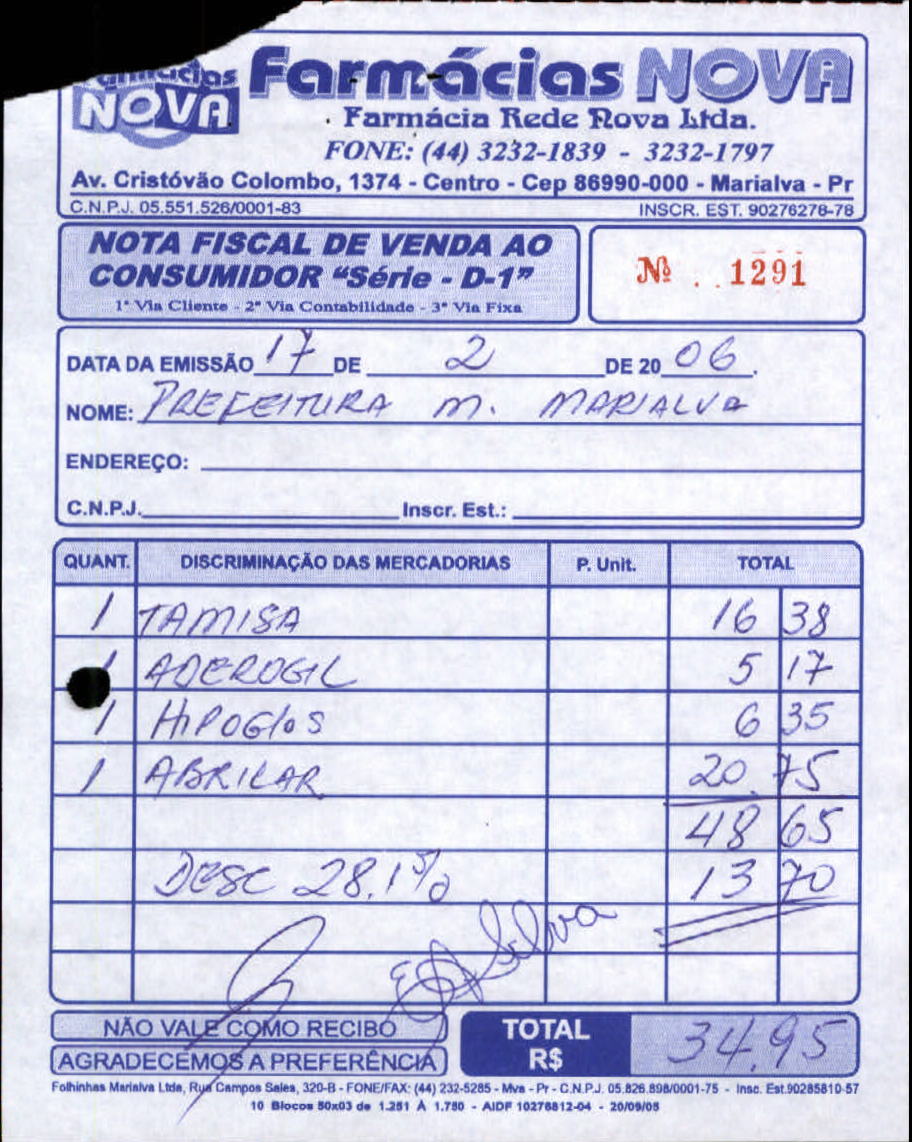 Farmácias NOVA
Farmácias NOVA
Farmácia Rede Nova Ltda.
FONE: (44) 3232-1839 - 3232-1797
Av. Cristóvão Colombo, 1374 - Centro - Cep 86990-000 - Marialva - Pr
C.N.P.J. 05.551.526/0001-83 INSCR. EST. 90276278-78
NOTA FISCAL DE VENDA AO
CONSUMIDOR "Série - D-1"
1ª Via Cliente - 2ª Via Contabilidade - 3ª Via Fixa
Nº 1291
DATA DA EMISSÃO 17 DE 2 DE 20 06
NOME: PREFEITURA M. MARIALVA
ENDEREÇO:
C.N.P.J. Inscr. Est.:
QUANT. DISCRIMINAÇÃO DAS MERCADORIAS P. Unit. TOTAL
1 TAMISA 16 38
1 ADEROGIL 5 17
1 HIPOGLOS 6 35
1 ABRILAR 20 75
48 65
DESC 28,1% 13 70
Silva
NÃO VALE COMO RECIBO
AGRADECEMOS A PREFERÊNCIA
TOTAL R$ 34,95
Folhinhas Marialva Ltda, Rua Campos Sales, 320-B - FONE/FAX: (44) 232-5285 - Mva - Pr - C.N.P.J. 05.826.898/0001-75 - Insc. Est.90285810-57
10 Blocos 50x03 de 1.251 À 1.750 - AIDF 10276812-04 - 20/09/05